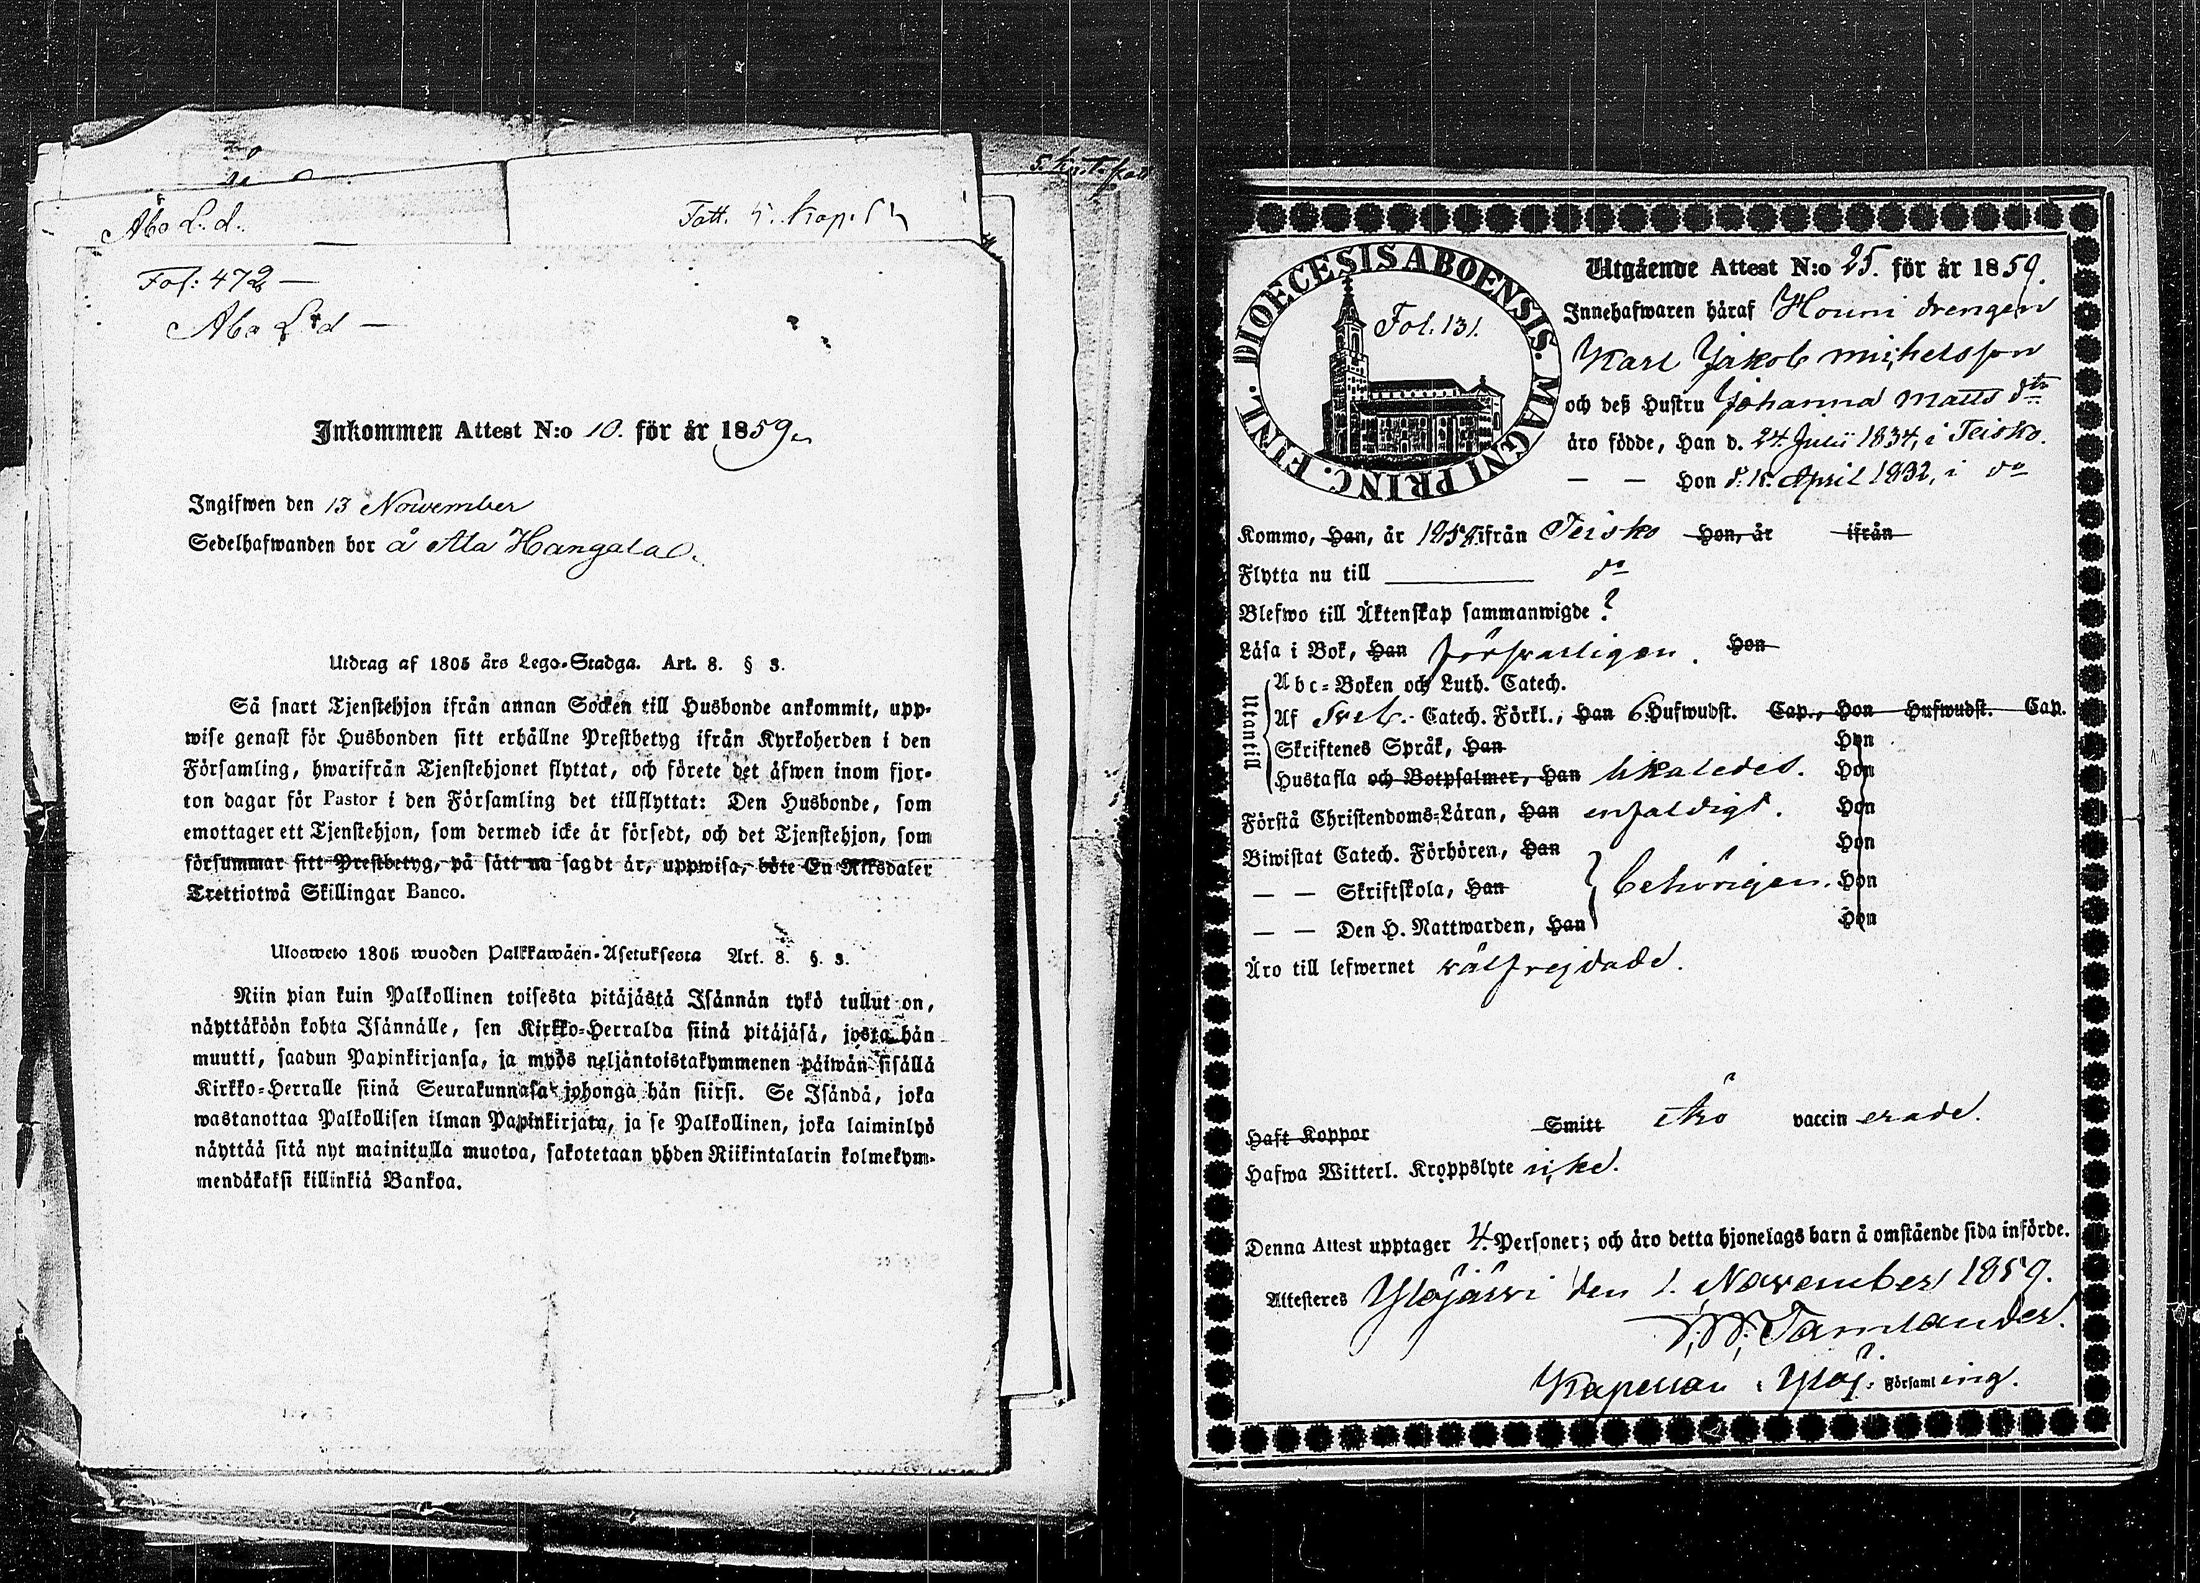 5. Kust. fol.
Åbo L.d.
Fatt. 4. Kap.
Fol: 472 —
Åbo L:d —
Inkommen Attest N:o 10. för år 1859.
Ingifwen den 13 Nowember
Sedelhafwanden bor å Ala Hangala.
Utdrag af 1805 års Lego-Stadga. Art. 8. § 3.
Så snart Tjenstehjon ifrån annan Socken till Husbonde ankommit, upp-
wise genast för Husbonden sitt erhållne Prestbetyg ifrån Kyrkoherden i den
Församling, hwarifrån Tjenstehjonet flyttat, och förete det äfwen inom fjor-
ton dagar för Pastor i den Församling det tillflyttat: Den Husbonde, som
emottager ett Tjenstehjon, som dermed icke är försedt, och det Tjenstehjon, som
försummar sitt Prestbetyg, på sätt nu sagdt är, uppwisa, böte En Riksdaler
Trettiotwå Skillingar Banco.
Ulosweto 1805 wuoden Palkkawäen-Asetuksesta Art. 8. §. 3.
Niin pian kuin Palkollinen toisesta pitäjästä Isännän tykö tullut on,
näyttäköön kohta Isännälle, sen Kirkko-Herralda siinä pitäjäsä, josta hän
muutti, saadun Papinkirjansa, ja myös neljäntoistakymmenen päiwän sisällä
Kirkko-Herralle siinä Seurakunnasa johonga hän siirsi. Se Isändä, joka
wastanottaa Palkollisen ilman Papinkirjata, ja se Palkollinen, joka laiminlyö
näyttää sitä nyt mainitulla muotoa, sakotetaan yhden Riikintalarin kolmekym-
mendäkaksi killinkiä Bankoa.
DIOECESIS ABOENSIS. MAGNI PRINC. FINL.
Fol. 131.
Utgående Attest N:o 25. för år 1859.
Innehafwaren häraf Houni drengen
Karl Jakob Michelsson
och deß Hustru Johanna Matts dtr
äro födde, Han d. 24 Julii 1834, i Teisko.
— — Hon d. 15. April 1832, i do
Kommo, Han, år 1858 ifrån Teisko Hon, år ifrån
Flytta nu till do
Blefwo till Äktenskap sammanwigde ?
Läsa i Bok, Han förswarligen. Hon
Utantill
Abc-Boken och Luth. Catech.
Af Sveb. Catech. Förkl., Han 6. Hufwudst. Cap., Hon Hufwudst. Cap.
Skriftenes Språk, Han Hon
Hustafla och Botpsalmer, Han likaledes. Hon
Förstå Christendoms-Läran, Han enfaldigt. Hon
Biwistat Catech. Förhören, Han Hon
— — Skriftskola, Han behörigen. Hon
— — Den H. Nattwarden, Han Hon
Äro till lefwernet wälfrejdade.
Haft Koppor Smitt äro vaccin erade.
Hafwa Witterl. Kroppslyte icke.
Denna Attest upptager 4. Personer; och äro detta hjonelags barn å omstående sida införde.
Attesteras Ylöjärvi den 1. November 1859.
W. Tamlander.
Kapellan i Ylöj. Församling.